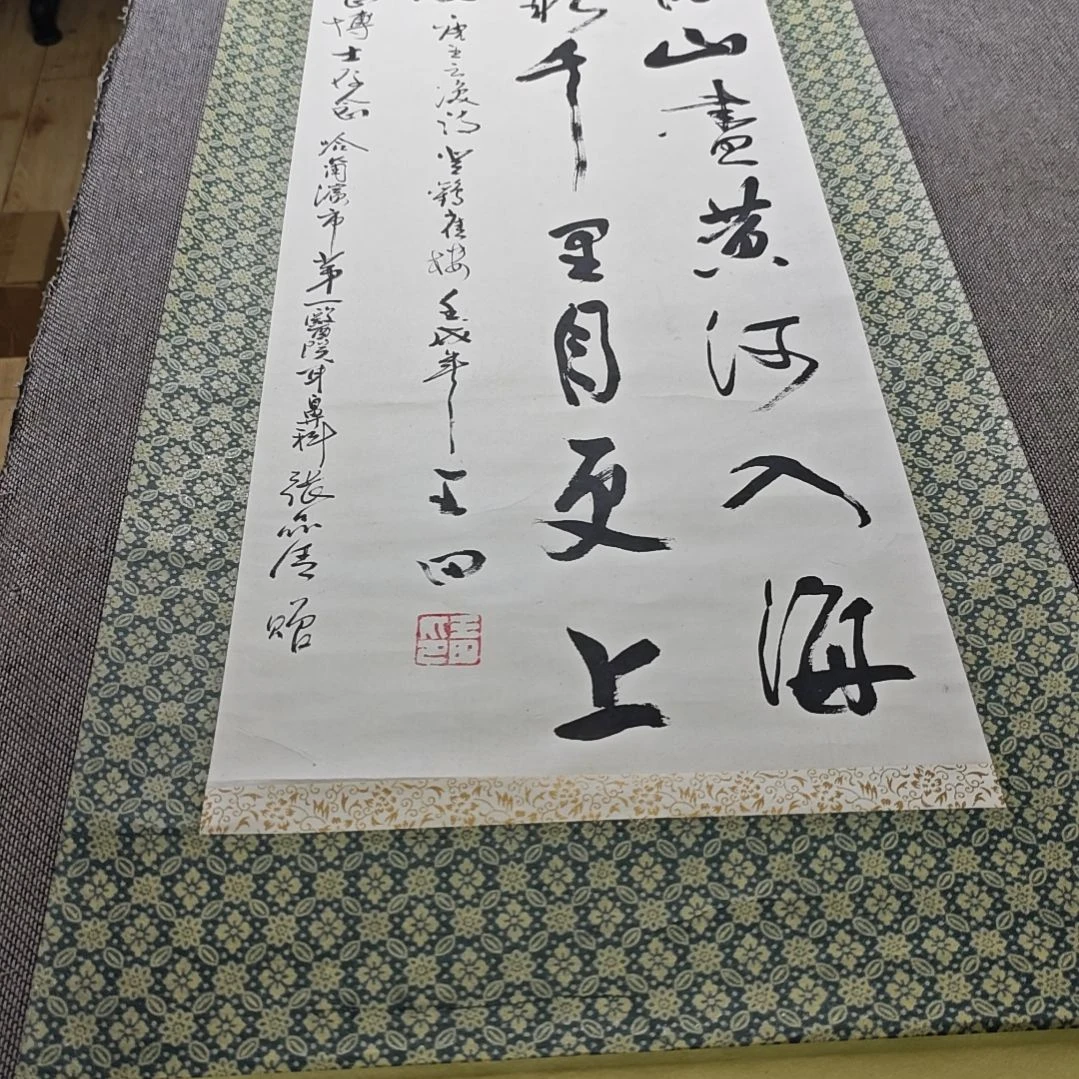 山盡黄河入海
千里目更上
唐王之渙詩登鹳雀楼 壬戌年 王田
博士存念 哈爾濱市第一醫院耳鼻科 張品清 贈